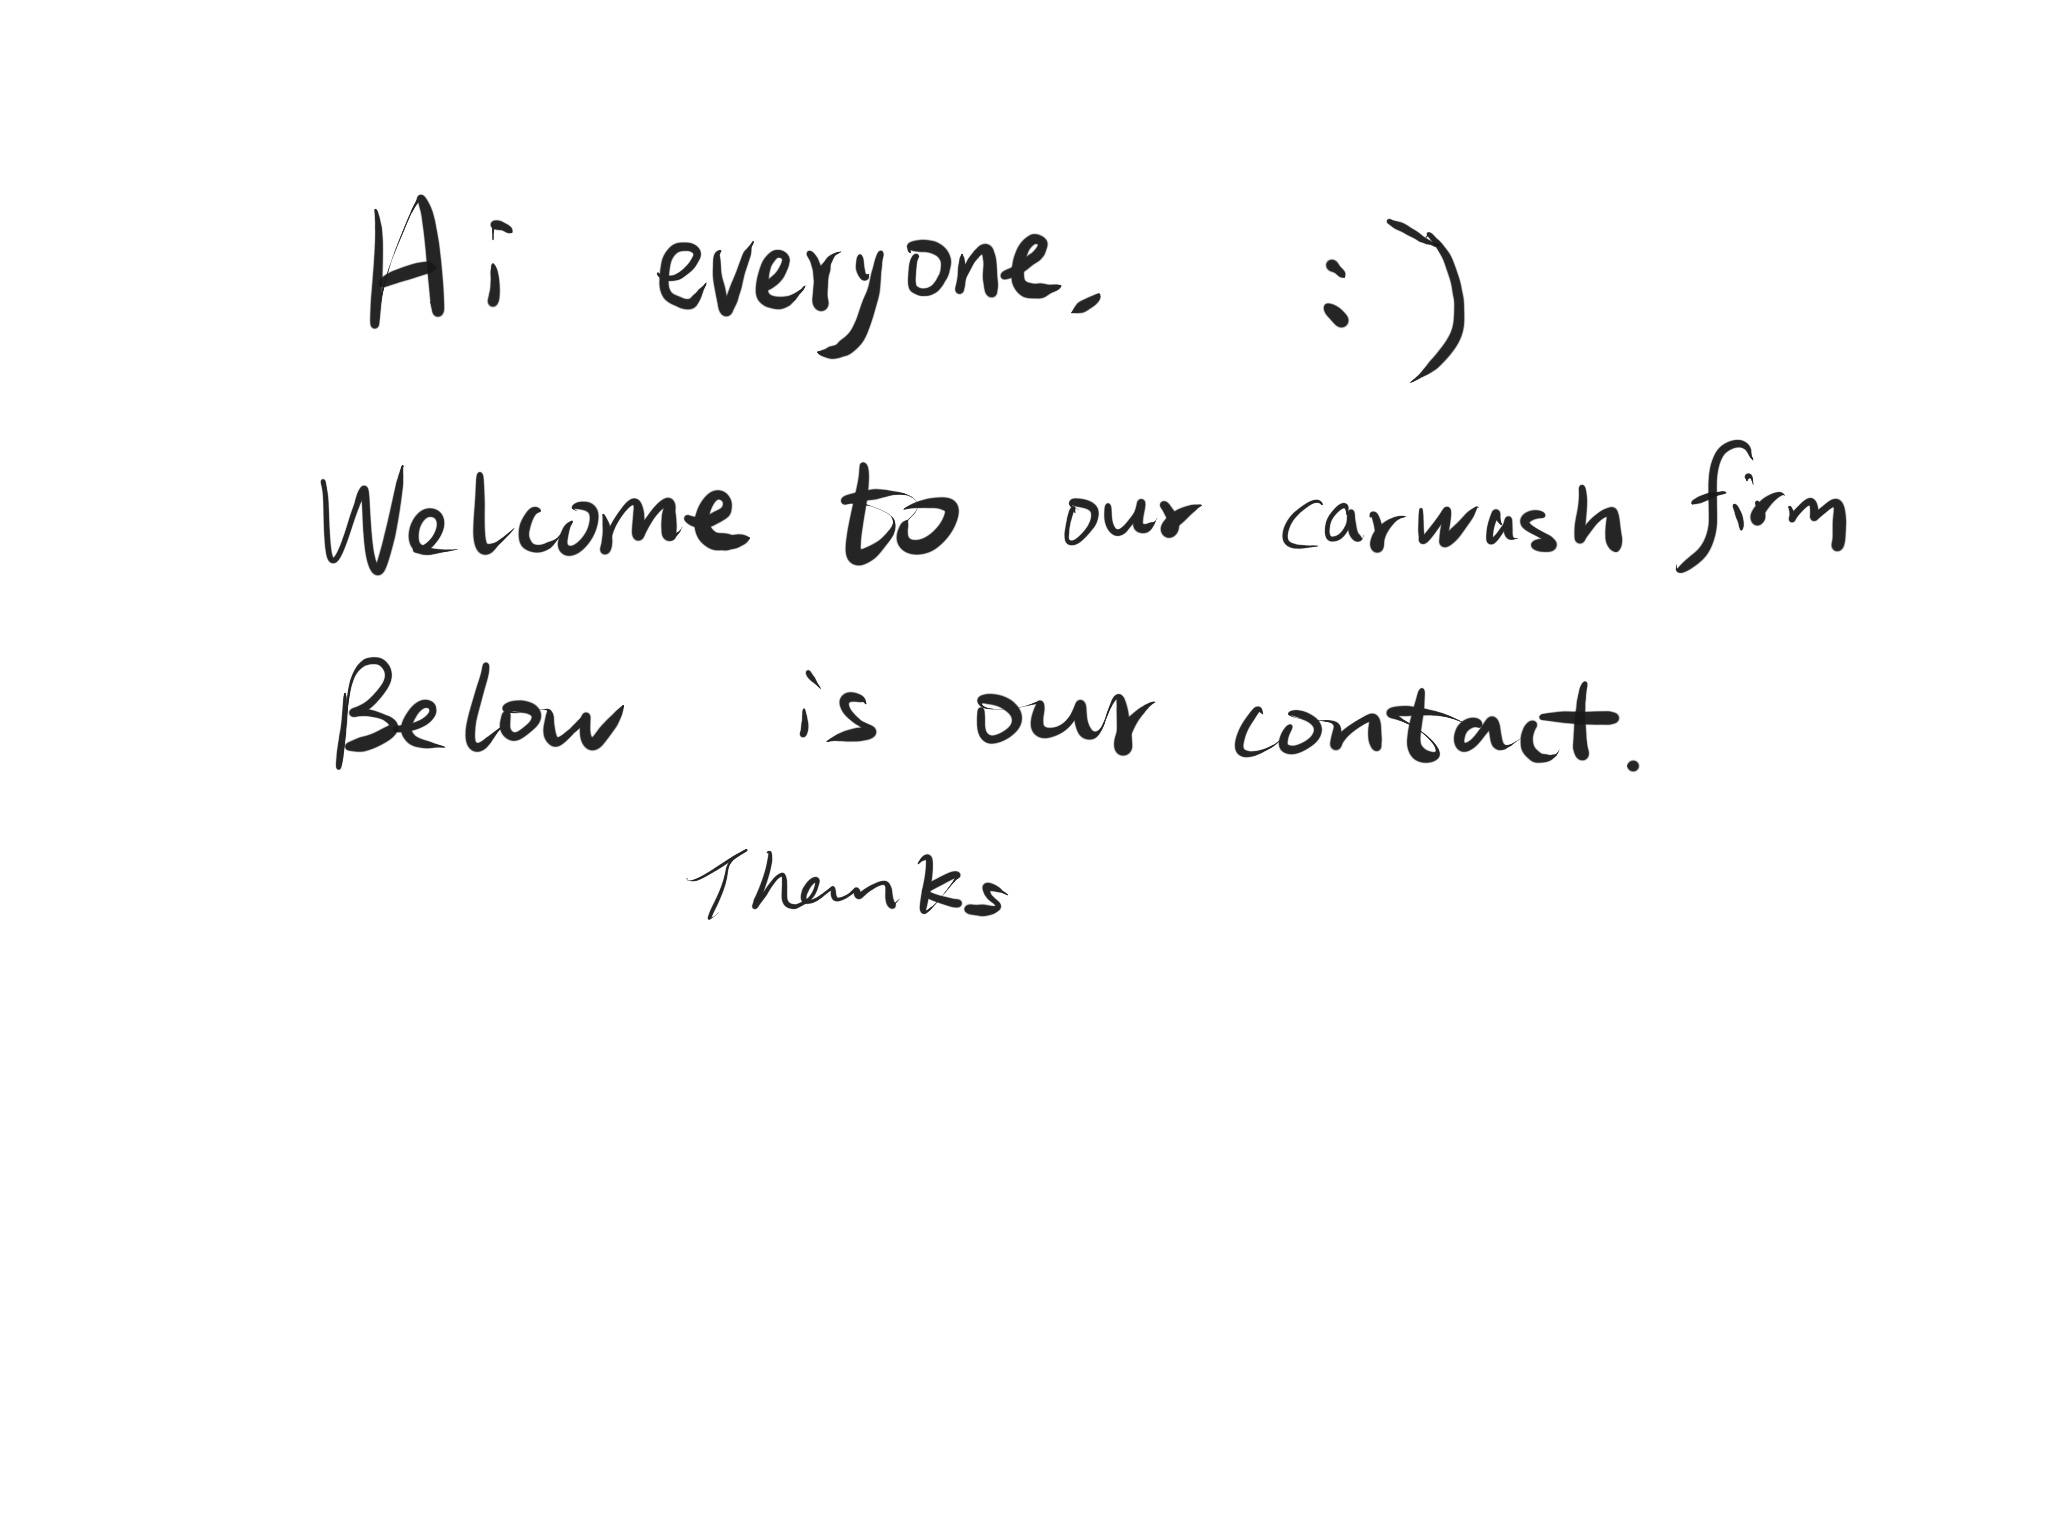 Hi everyone, :)
Welcome to our carwash firm
Below is our contact.
Thanks